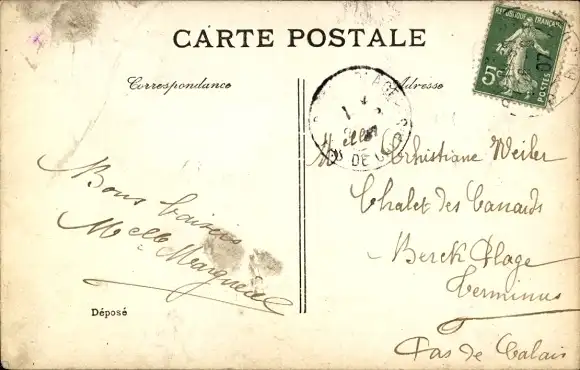 CARTE POSTALE
Correspondance
Adresse
REPUBLIQUE FRANÇAISE
5c
POSTES
07
PLAGE
PAS DE CALAIS
Bons baisers
Melle Marguerite
Melle Crhistiane Weiler
Chalet des Canards
Berck Plage
Terminus
Pas de Calais
Déposé